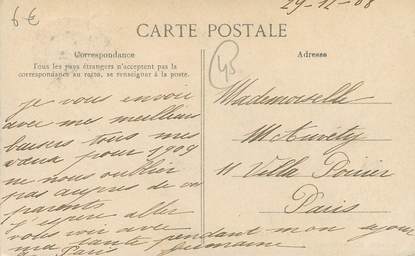 6€
29-12-08
CARTE POSTALE
Correspondance
Tous les pays étrangers n'acceptent pas la
correspondance au recto, se renseigner à la poste.
Adresse
45
je vous envoie
avec mes meilleurs
baisers tous mes
vœux pour 1909
ne nous oublier
pas auprès de vos
parents
j espère aller
vous voir avec
ma tante pendant mon
Paris Germaine
Mademoiselle
11 Villa Poirier
Paris